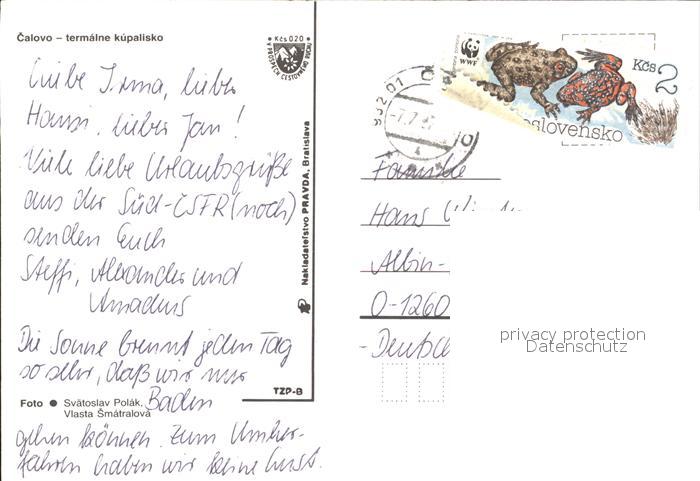 Čalovo – termálne kúpalisko
Kčs 0,20
V PROSPECH CESTOVNÉHO RUCHU
Liebe Irma, lieber
Hansi, lieber Jan!
Viele liebe Urlaubsgrüße
aus der Süd-ČSFR (noch)
senden Euch
Steffi, Alexander und
Amadeus
Die Sonne brennt jeden Tag
so sehr, daß wir nur
Baden
gehen können. Zum Umher-
fahren haben wir keine Lust.
Foto ● Svätoslav Polák,
Vlasta Šmátralová
TZP-B
Nakladateľstvo PRAVDA, Bratislava
WWF
Kčs 2
oslovensko
932 01
Familie
Hans
Albin-
O-1260
-Deutsc
privacy protection
Datenschutz